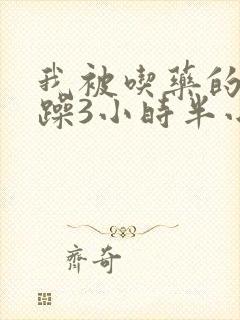 我被喫藥的
躁3小時半小
齊奇